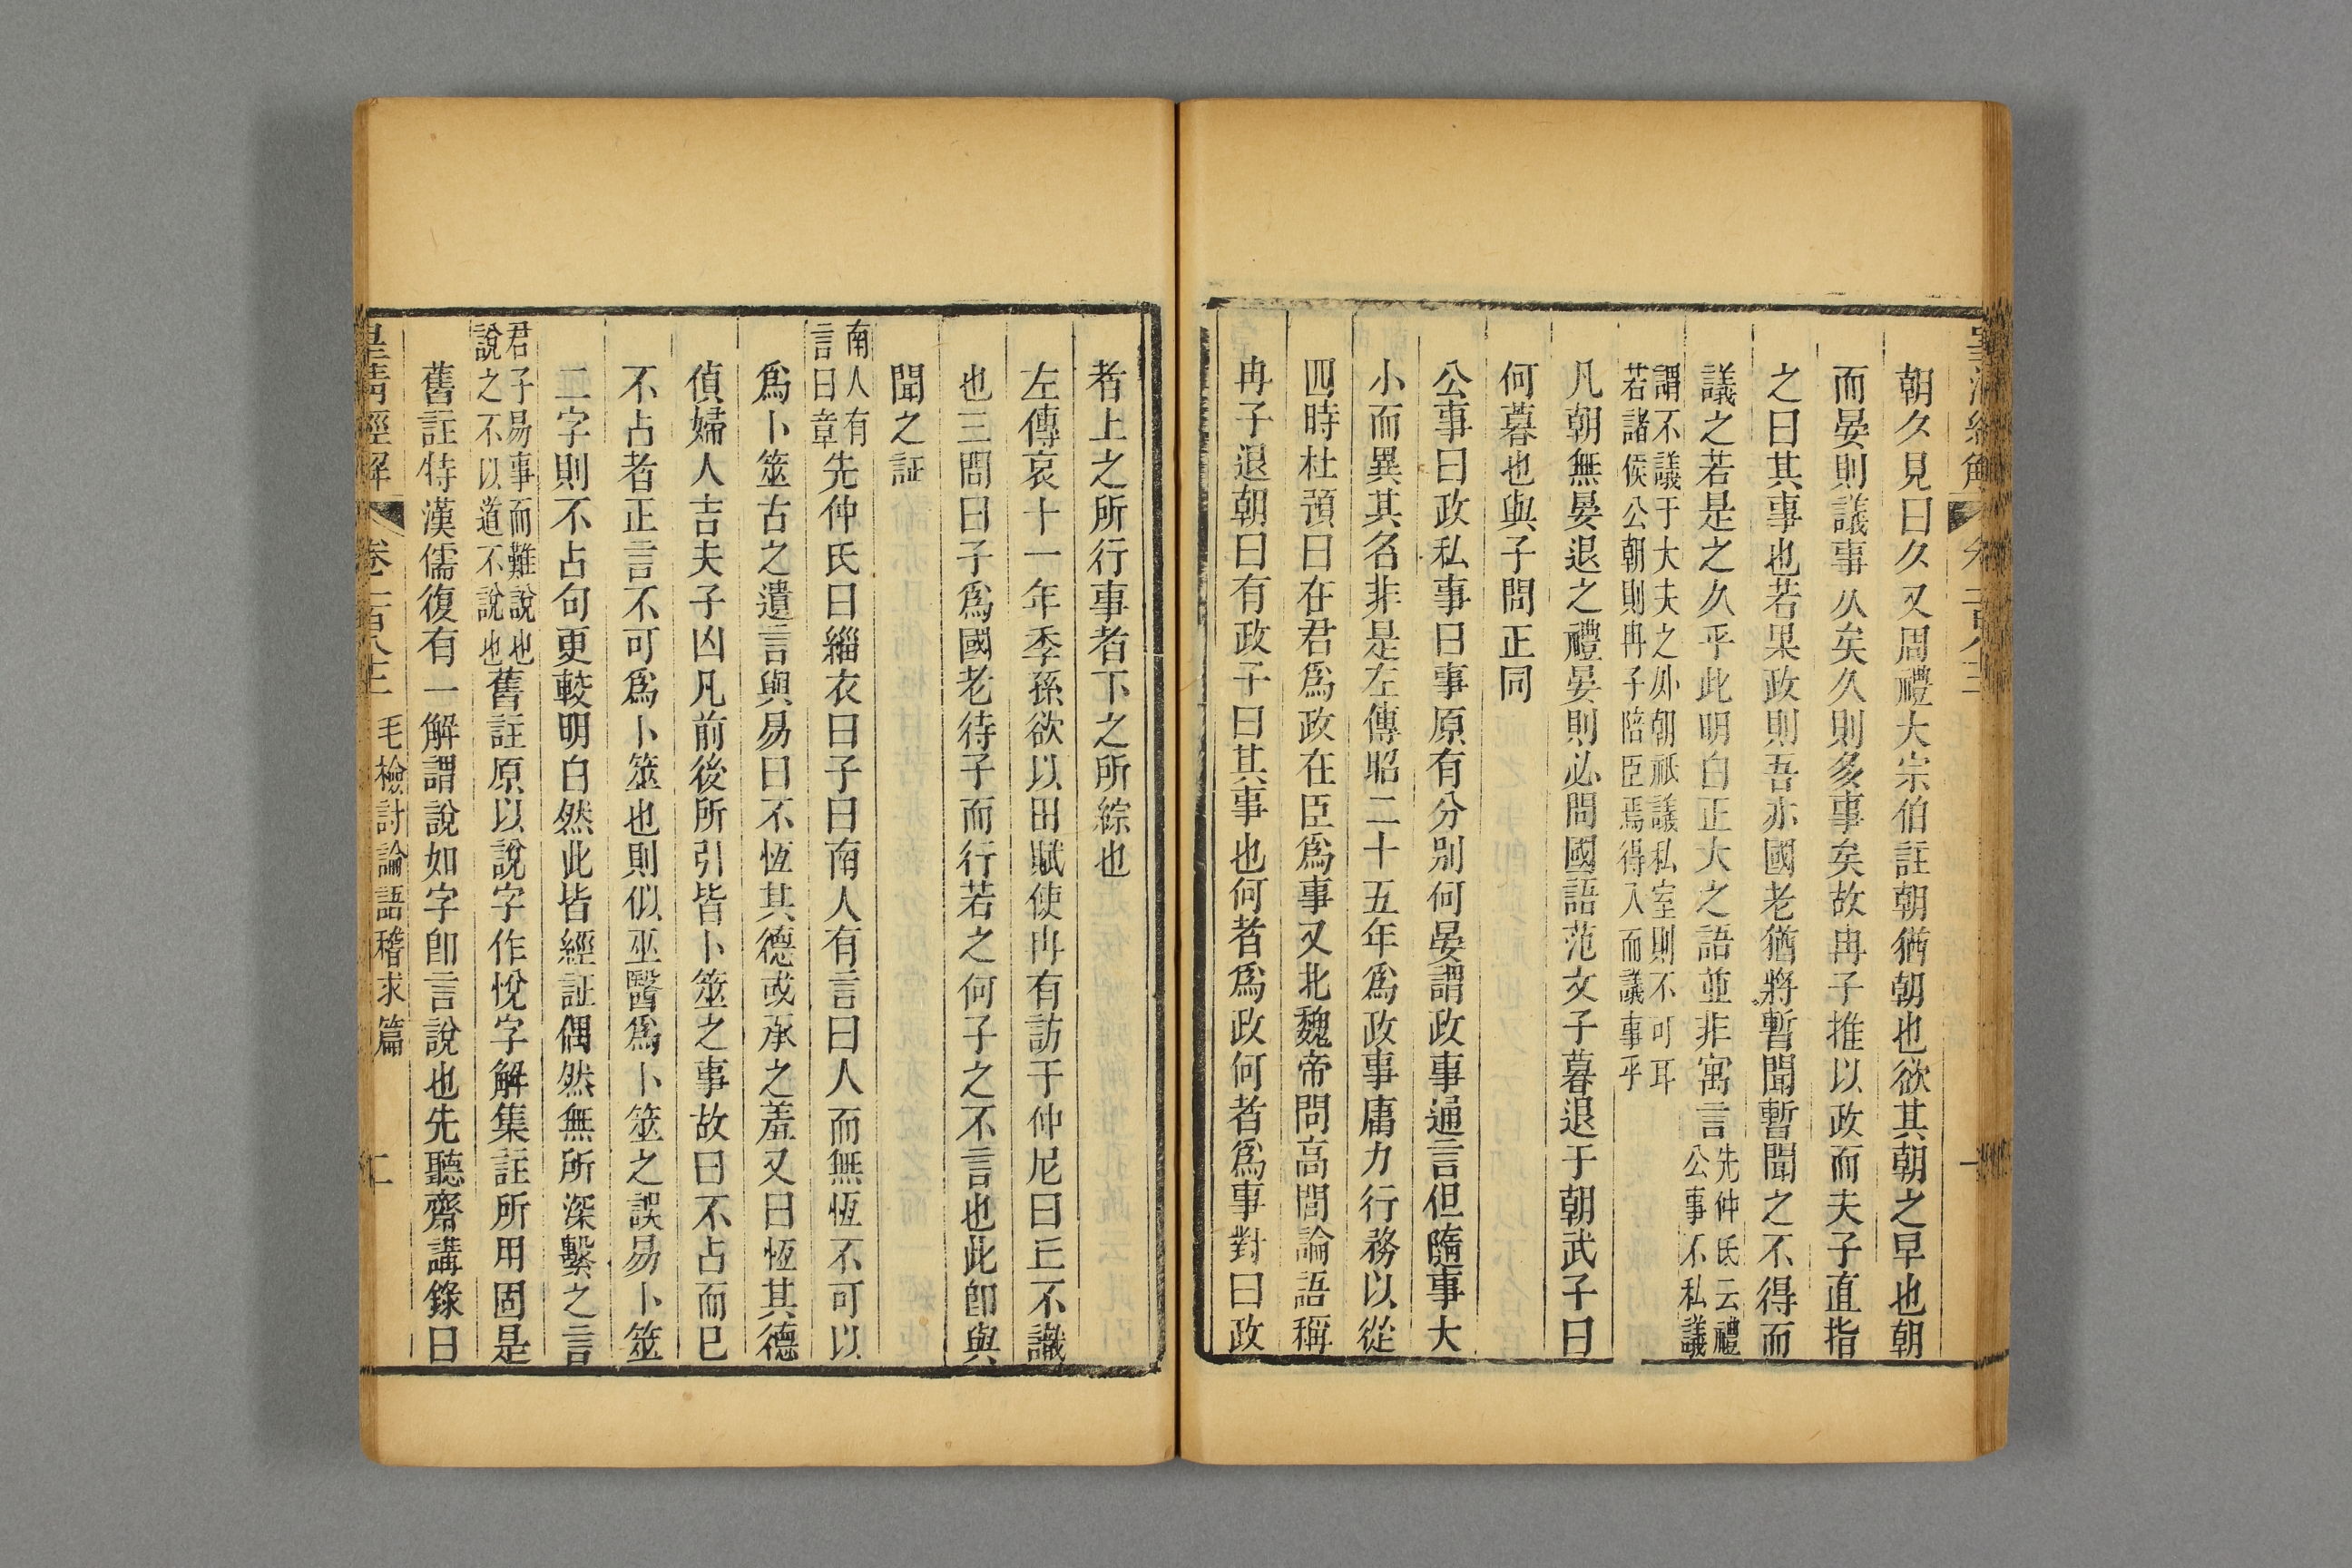 朝久見曰久又周禮大宗伯註朝猶朝也欲其朝之早也朝
而晏則議事久矣久則多事矣故冉子推以政而夫子直指
之曰其事也若果政則吾亦國老猶將暫聞暫聞之不得而
議之若是之久乎此明白正大之語並非寓言先仲氏云禮公事不私議
謂不議于大夫之外朝祇議私室則不可耳
若諸侯公朝則冉子陪臣焉得入而議事乎
凡朝無晏退之禮晏則必問國語范文子暮退于朝武子曰
何暮也與子問正同
公事曰政私事曰事原有分別何晏謂政事通言但隨事大
小而異其名非是左傳昭二十五年為政事庸力行務以從
四時杜預曰在君爲政在臣爲事又北魏帝問高閭論語稱
冉子退朝曰有政子曰其事也何者爲政何者爲事對曰政
者上之所行事者下之所綜也
左傳哀十一年季孫欲以田賦使冉有訪于仲尼曰丘不識
也三問曰子爲國老待子而行若之何子之不言也此卽與
聞之証
南人有言曰章先仲氏曰緇衣曰子曰南人有言曰人而無恆不可以
爲卜筮古之遺言與易曰不恆其德或承之羞又曰恆其德
偵婦人吉夫子凶凡前後所引皆卜筮之事故曰不占而已
不占者正言不可爲卜筮也則似巫醫爲卜筮之誤易卜筮
二字則不占句更較明白然此皆經証偶然無所深繫之言
君子易事而難說也說之不以道不說也舊註原以說字作悅字解集註所用固是
舊註特漢儒復有一解謂說如字卽言說也先聽齋講錄曰
皇清經解
卷一百八十三
毛檢討論語稽求篇
二